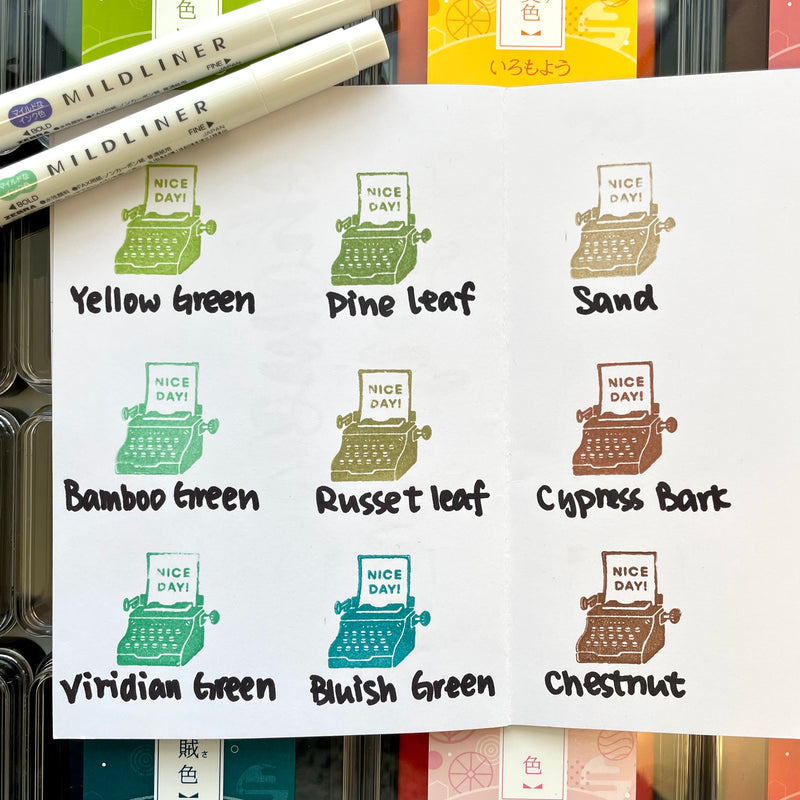 色
色
いろもよう
MILDLINER
FINE▶
JAPAN
マイルドな
インク色
◀BOLD
MILDLINER
FINE▶
JAPAN
マイルドな
◀BOLD
ZEBRA
NICE
DAY!
Yellow Green
NICE
DAY!
Pine leaf
NICE
DAY!
Sand
NICE
DAY!
Bamboo Green
NICE
DAY!
Russet leaf
NICE
DAY!
Cypress Bark
NICE
DAY!
Viridian Green
NICE
DAY!
Bluish Green
NICE
DAY!
Chestnut
賊色
さ
色